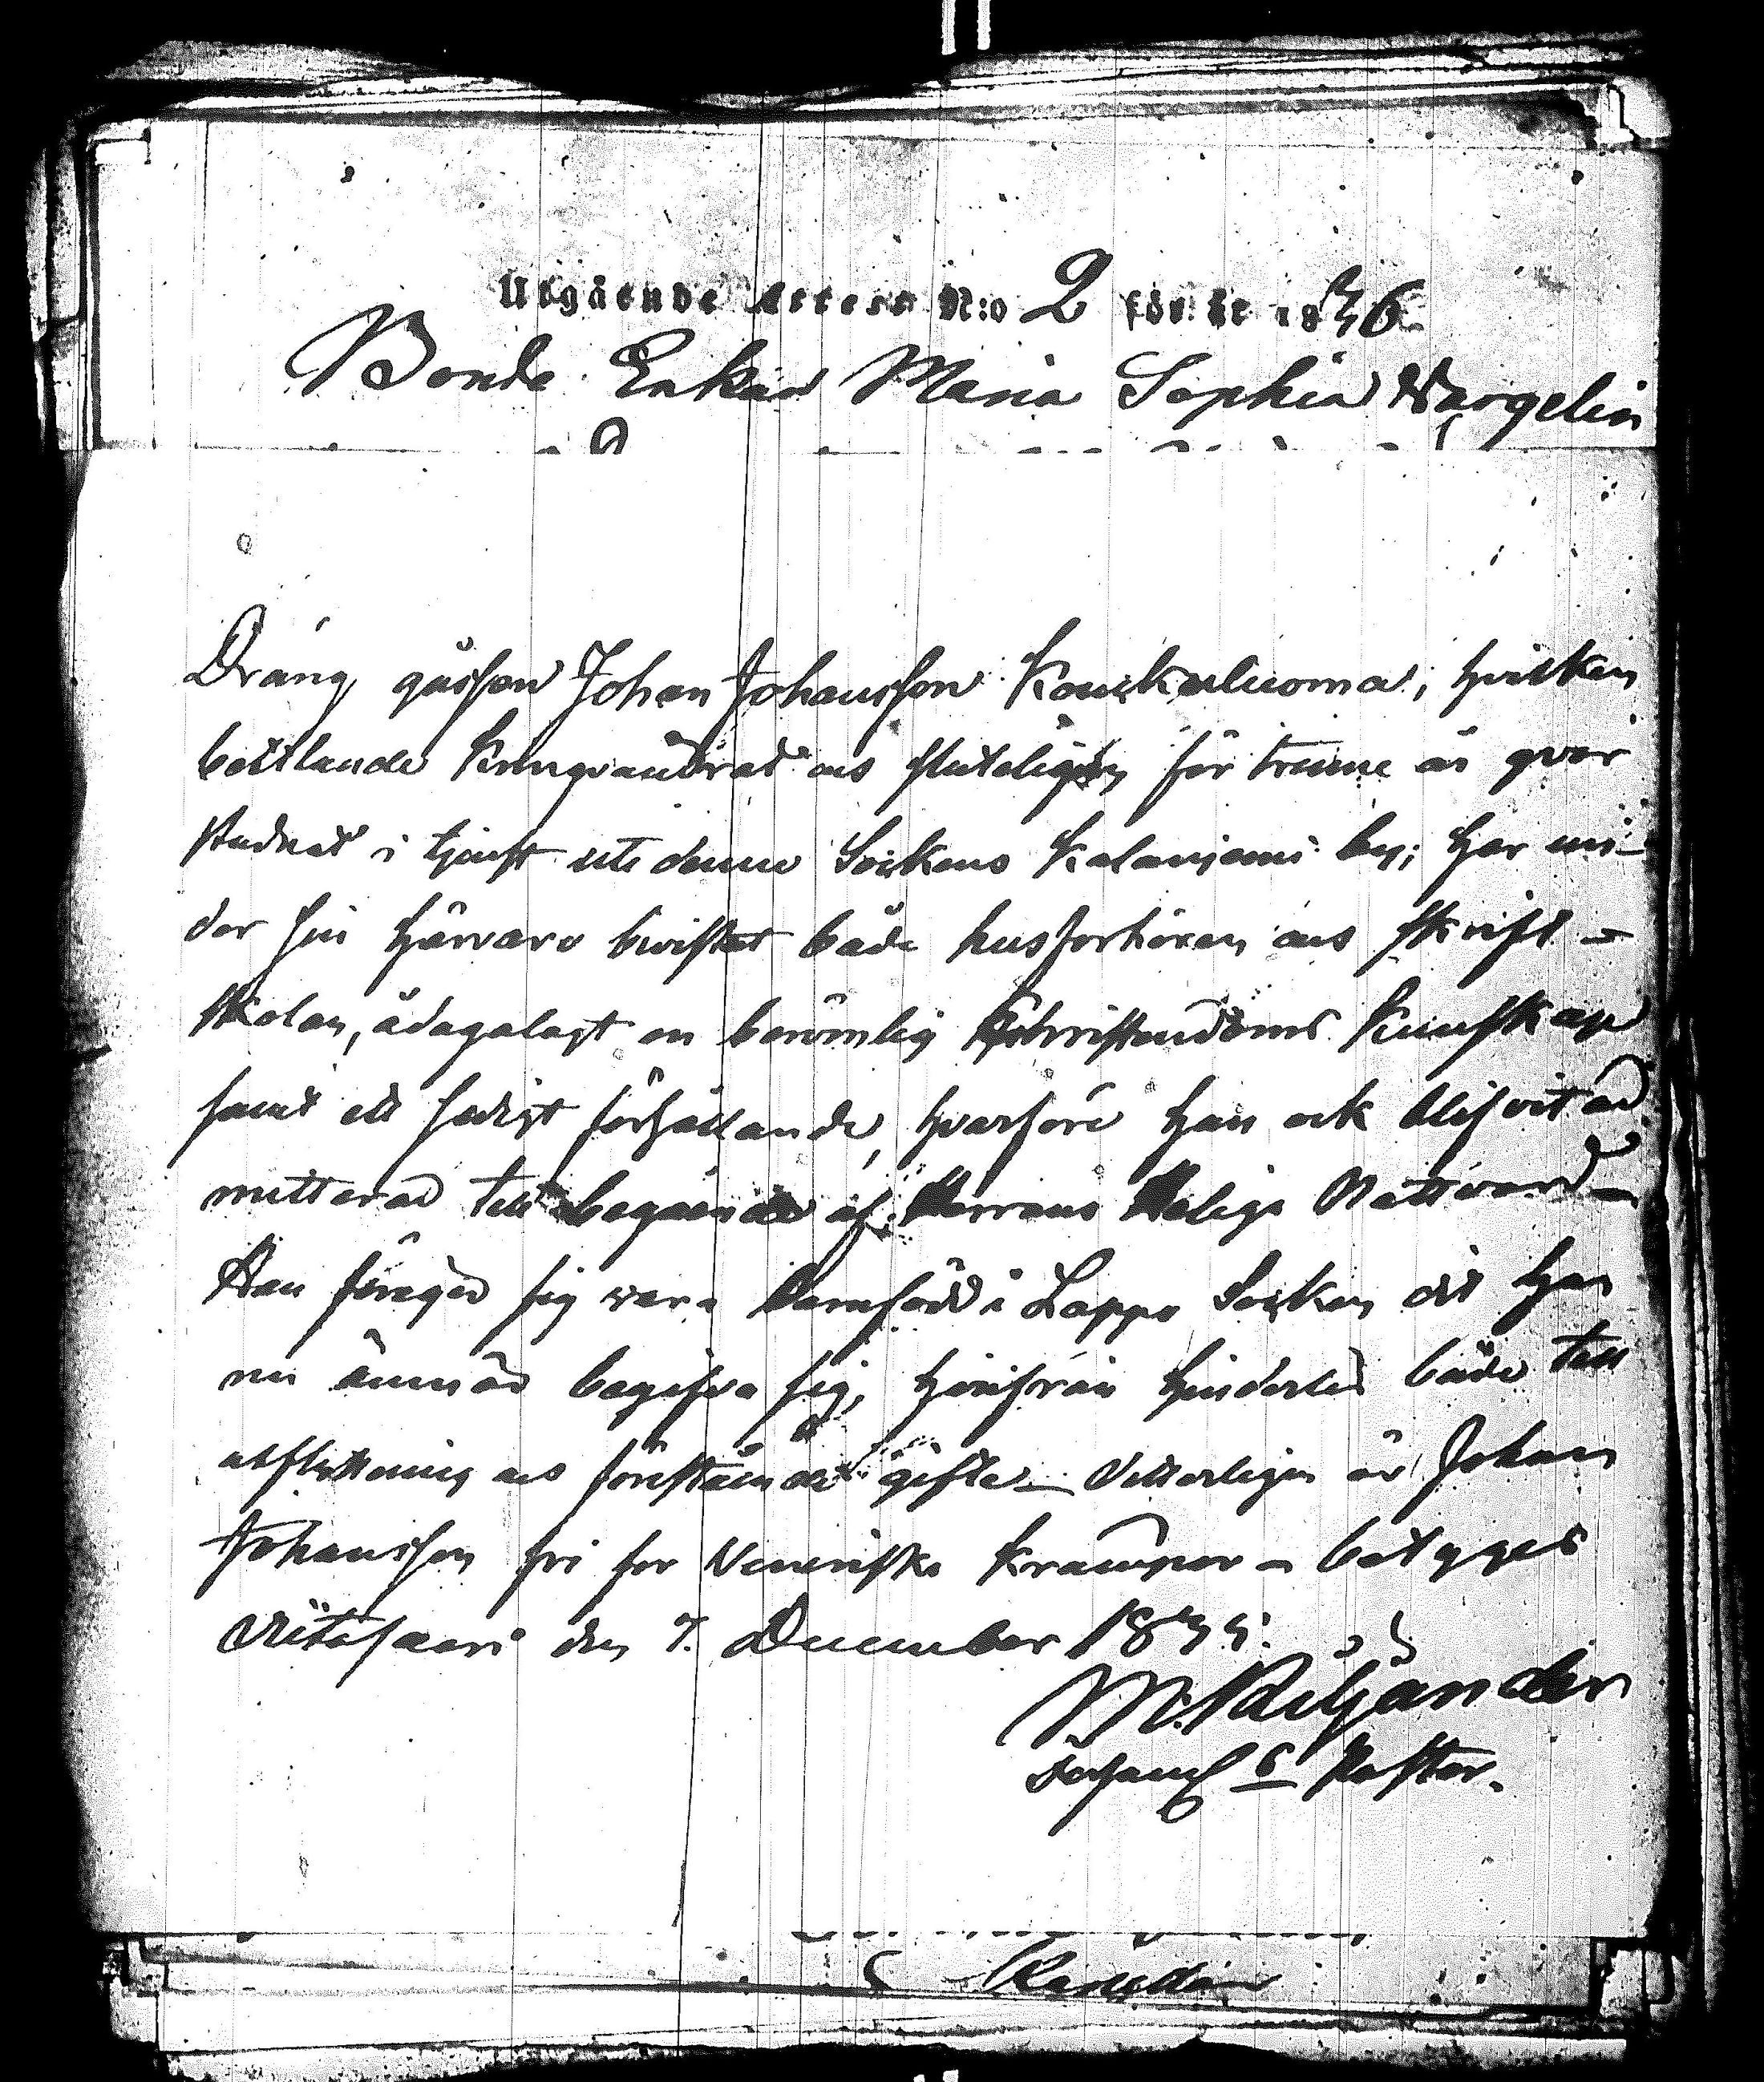 Utgående Attest N:o 2 för år 1836
Bonde Enkan Maria Sophia Wargelin
Dräng gossen Johan Johansson Kouckaluoma, hvilken
bettlande kringvandrat och sluteligen för trenne år qvar
stadnat i tjenst uti denne Sockens Kalaniemi by; har un-
der sin härvaro bivistat både husförhören och Skrift-
skolan, ådagalagt en berömlig Christendoms Kunskap
samt ett sedigt förhållande, hvarföre han ock blifvit ad
mitterad till begående af Herrans Heliga Nattvard -
Han föreged sig vara barnfödd i Lappo Socken dit han
nu ämnar begifva sig, härifrån hinderlös både till
utflyttning och gifte - Ytterligen är Johan
Johansson fri för Veneriska Krämpor - betyges
Wiitasaari den 7. December 1835.
M. Piljander
Pastor.